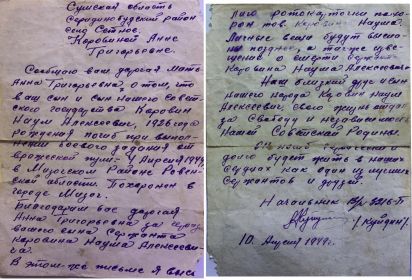 Сумская область
Серединобудский район
село Сытное.
Коровиной Анне
Григорьевне.
Сообщаю вам, дорогая мать
Анна Григорьевна, о том, что
ваш сын и сын нашего Совет-
ского государства Коровин
Наум Алексеевич, 1926 года
рождения погиб при выпол-
нении боевого задания от
вражеской пули - 4 Апреля 1944
в Мизочском Районе Ровен-
ской области. Похоронен в
городе Мизоч.
Благодарим вас дорогая
Анна Григорьевна за
вашего сына Сержанта
Коровина Наума Алексееви-
ча.
В этом-же письме я высы
лаю фотокарточки
Коровина Наума.
Личные вещи будут высла-
ны позднее, а также изве-
щение о смерти
Коровина Наума Алексеевича
Наш близкий друг и сын
нашего народа Коровин Наум
Алексеевич свою жизнь отдал
за Свободу и независимость
Нашей Советской Родины.
долго будет жить в наших
сердцах как один из лучших
Сержантов и друзей.
Начальник
10. Апреля 1944 г.